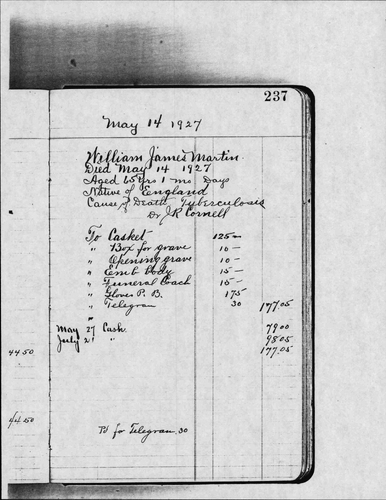 237
May 14 1927
William James Martin
Died May 14 1927
Aged 65 yrs 1 mo Days
Native of England
Cause of Death Tuberculosis
Dr J R Cornell
To Casket 125 —
" Box for grave 10 —
" Opening grave 10 —
" Emb body 15 —
" Funeral Coach 15 —
" Gloves P. B. 1 75
" Telegram 30 177.05
"
May 27 Cash 79 00
July 21 " 98.05
177.05
44 50
44 50
Pd for Telegram 30